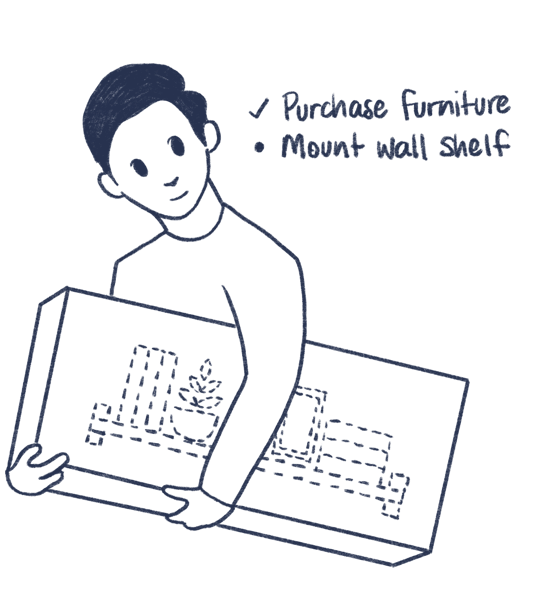 ✓ Purchase furniture
• Mount wall shelf